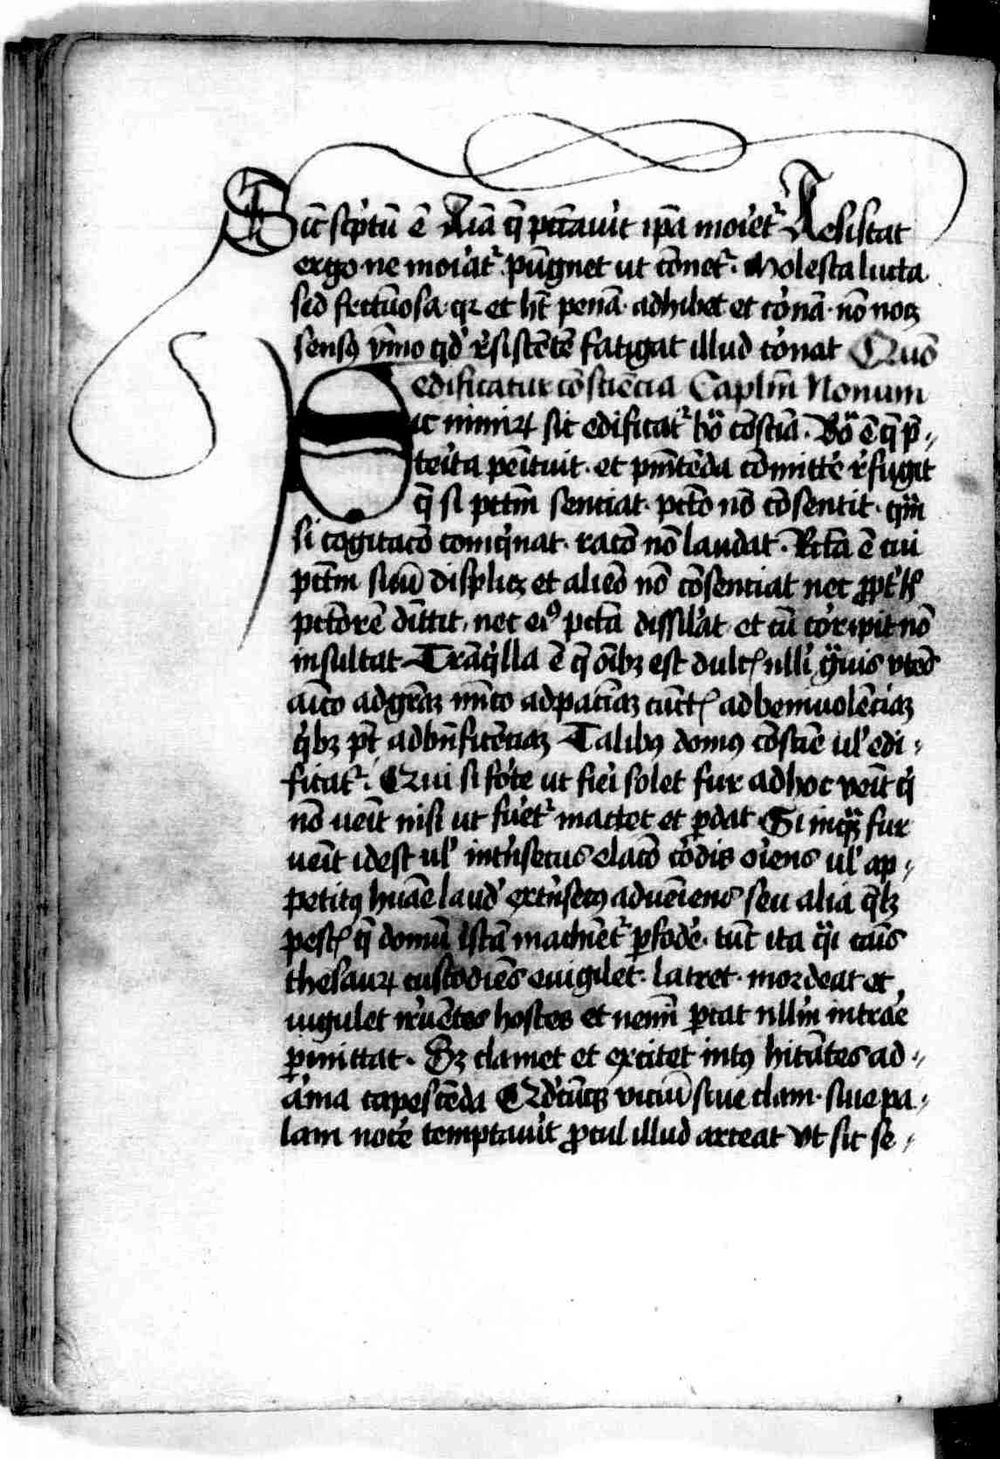 Sic̄ sc̓ptū ē Aīa q̄ pcc̄auit ip̄a moriet᷑ Resistat
ergo ne moriat᷑. pūgnet ut cōnet᷑. Molesta lucta
sed fructuosa. qꝛ et hꝫ penā. adhibet et coronā. nō nocꝫ
sensꝰ ymo qd̓ r̓sistētē fatigat illud coronat Quō
edificatur cōsciēcia Caplm̄ Nonum
Hic nimiꝝ sic edificat᷑ bō cōscīa. Bō ē q̄ p̄-
terita pēituit. et pnītēda cōmitte r̓fugit
q̄ si pctm̄ senciat. pctō nō cōsentit. qm̄
si cogitacō coinq̓nat. racō nō laudat. Rctā ē cui
pctm̄ suū displicꝫ et alieō nō cōsenciat nec ꝓpt̓
pctōrē dimittit. nec eiꝰ pctā dissil̓at et cū coripit nō
insultat. Tranq̓lla ē q̄ oībꝫ est dulcis nulli g̓uis utēs
aīco ad gr̄aꝫ inīco ad pacīaꝫ cūctis ad beniuolēciaꝫ
q̓bꝫ pt̄ ad bn̄ficēciaꝫ Talibꝰ domꝰ cōsciē ul̓ edi-
ficat᷑. Cui si forte ut fieri solet fur ad hoc ueīt q̓
nō ueīt nisi ut furet᷑ mactet et ꝑdat. Si inq̄ꝫ fur
ueīt idest ul̓ intrīsecus elacō cordis oriens ul̓ ap-
petitꝰ huāe laud̓ extrīsecꝰ adueīens seu alia q̄lꝫ
pestis q̄ domū istā machiet᷑ ꝑfode. tūc ita q̓i canis
thesauꝝ custodiēs euigilet. latret. mordeat et
iugulet irruētes hostes et nemī ꝑcat nllm̄ intrare
ꝑmittat. Sꝫ clamet et excitet intꝰ hītātes ad-
arma capescēda Qd̓cūqꝫ uiciū siue clam. siue pa-
lam nocē temptauit ꝓcul illud arceat ut sit se-